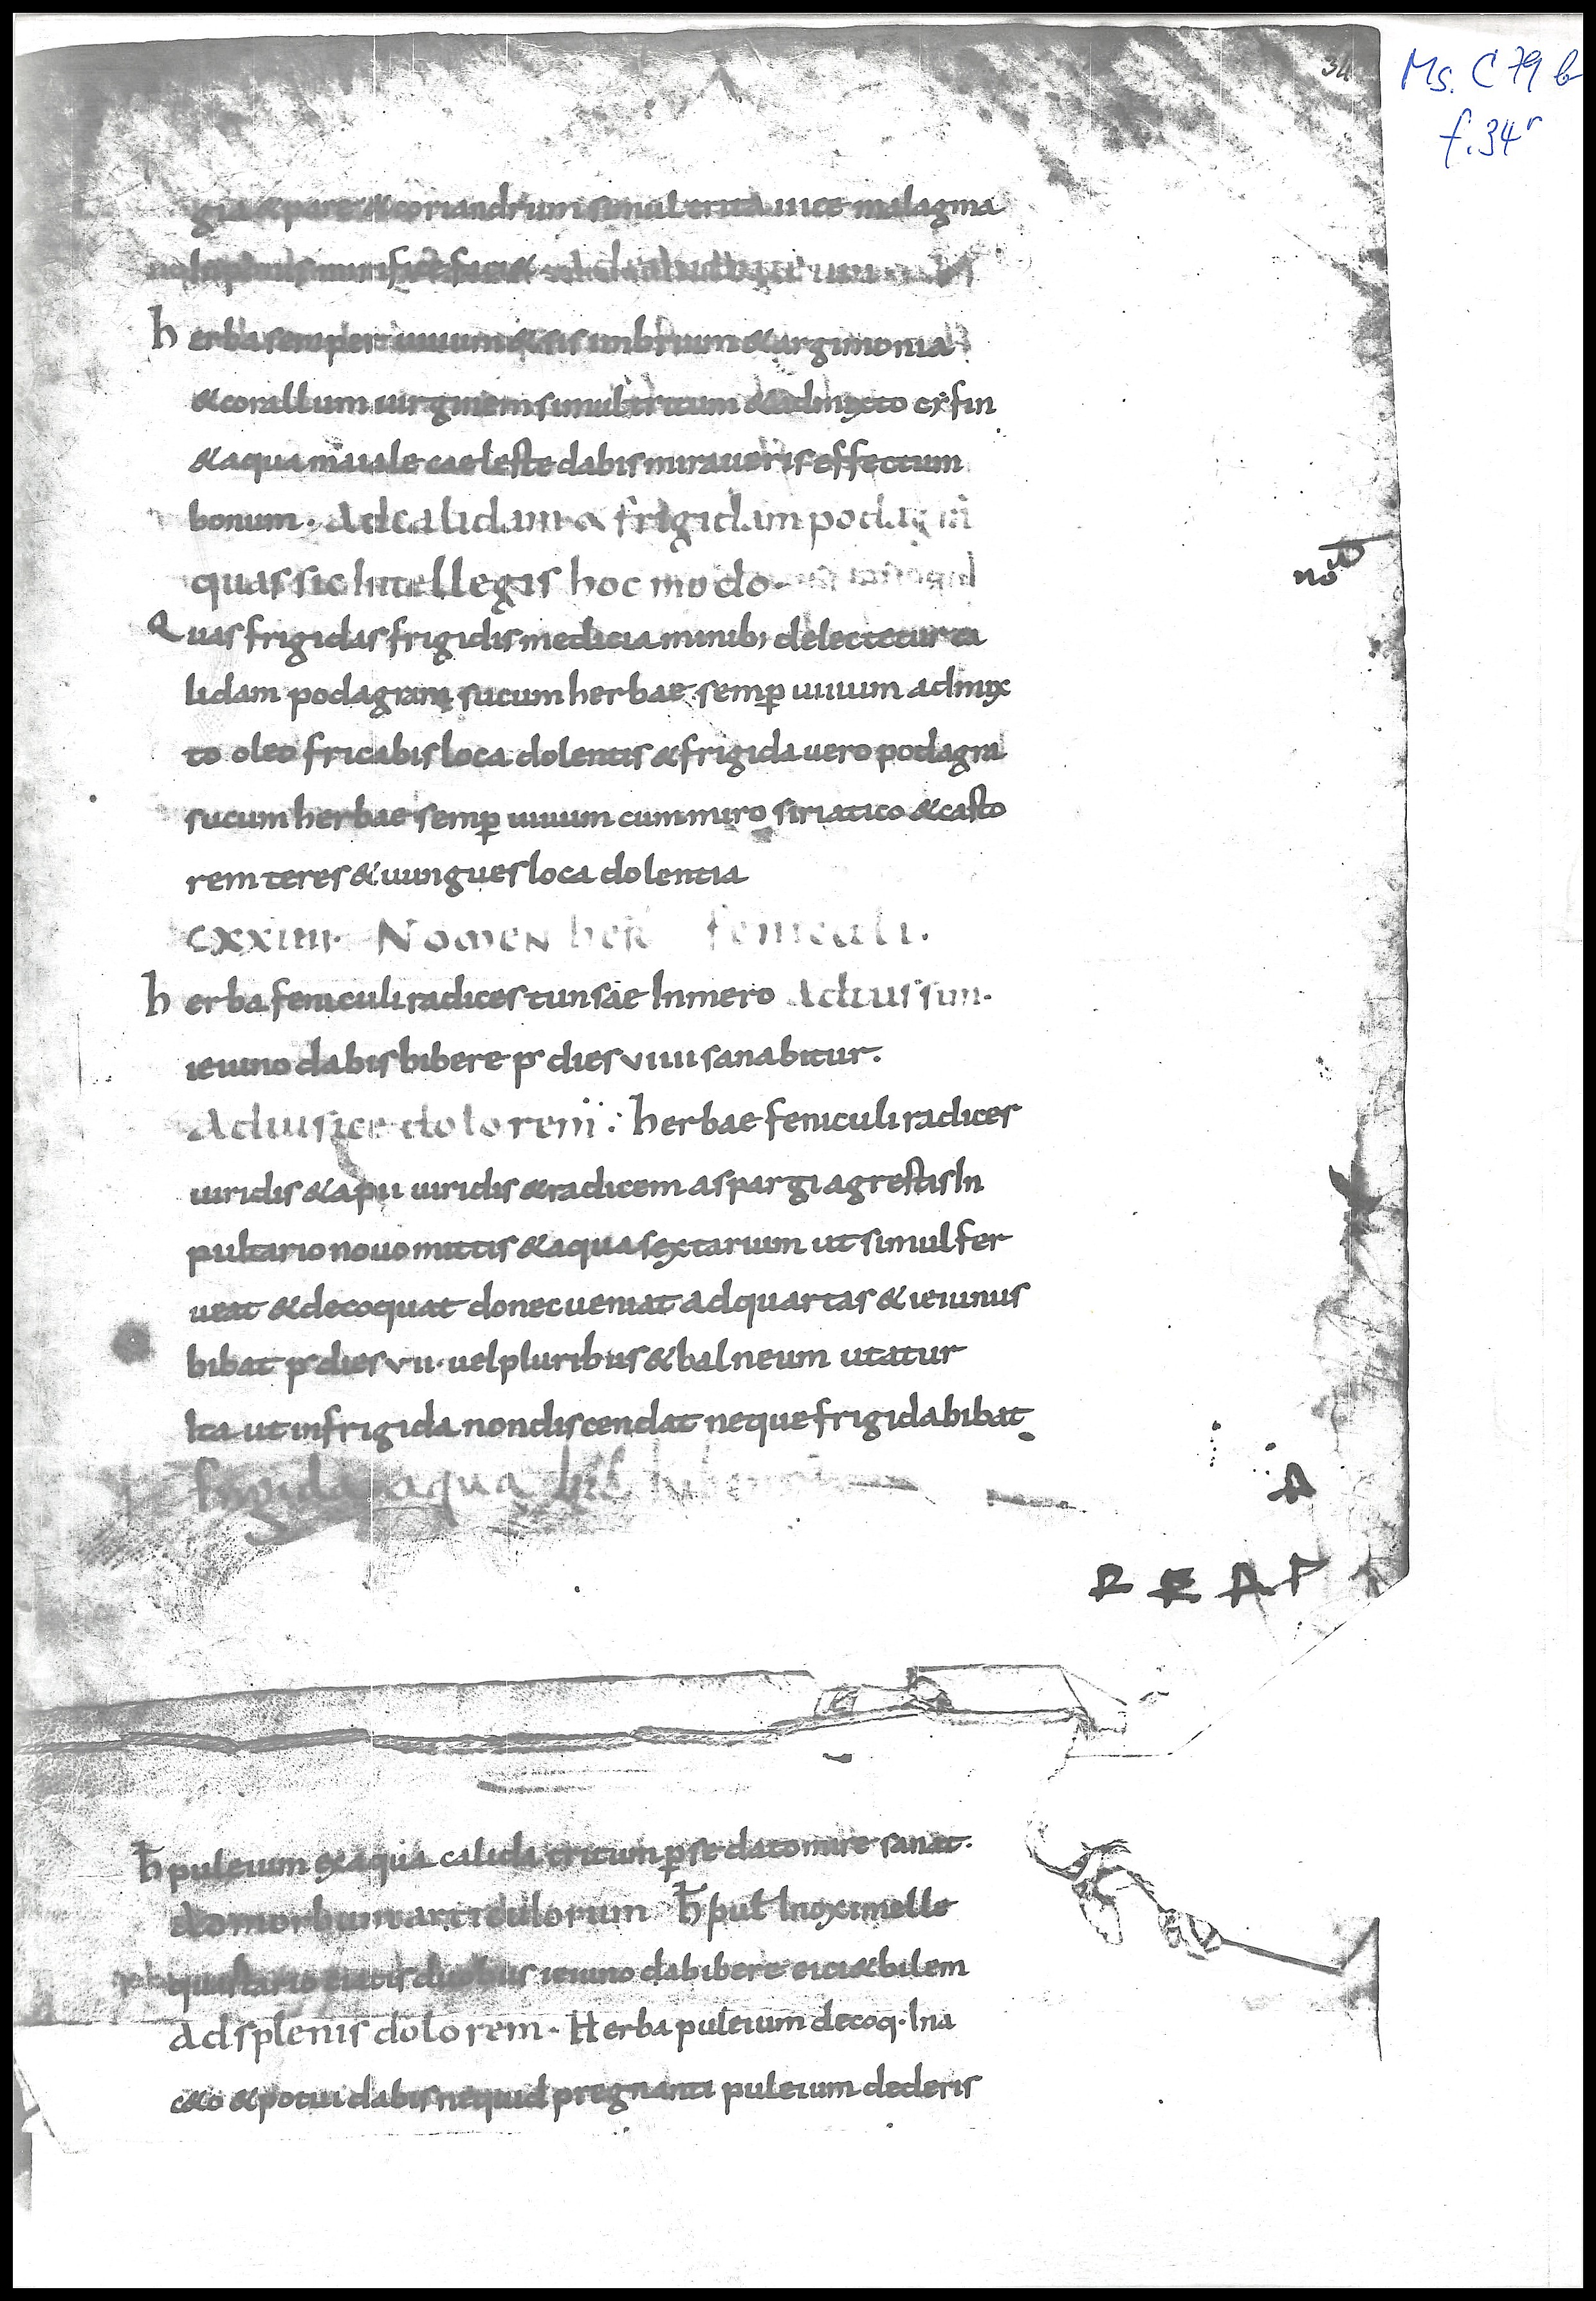 34
Ms. C 79 b
f. 34r
gia & pane & coriandrum simul trita uice malagma
h erba semper uiuum & sisimbrium & argimonia
& corallum uirginem simul tritum & admixto
& aqua maiale caeleste dabis mira ueris effectum
bonum. Ad calidam & frigidam podagra
quas sic Intellegis hoc modo.
Quas frigidas frigidis medicaminib; delectetur ca
lidam podagram sucum herbae semp uiuum admix
to oleo fricabis loca dolentis & frigida uero podagra
sucum herbae semp uiuum cum miro siriatico & casto
rem teres & uungues loca dolentia
CXXIIII. NOMEN feniculi.
h erba feniculi radices tunsae In mero Ad tussim.
ieiuno dabis bibere p dies VIIII sanabitur.
Ad uisice dolorem: herbae feniculi radices
uiridis & apii uiridis & radicem aspargi agrestis In
pultario nouo mittis & aqua sextarium ut simul fer
ueat & decoquat donec ueniat ad quartas & ieiunus
bibat p dies VII. uel pluribus & balneum utatur
Ita ut in frigida non discendat neque frigida bibat
aqua
A
R E A P
h puleium ex aqua calida tritum p se dato mire sanat.
Ad morbum articulorum h pul In oximelle
duobus ieiuno da bibere eici & bilem
Ad splenis dolorem. Herba puleium decoq. In a
c&o & potui dabis ne quid pregnanti puleium dederis